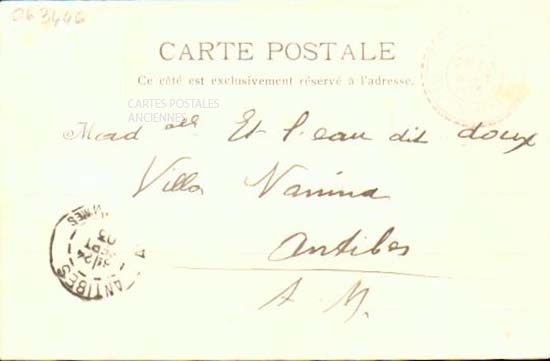 063446
CARTE POSTALE
Ce côté est exclusivement réservé à l'adresse.
CARTES POSTALES
ANCIENNES
Mad elle Et l'eau dit doux
Villa Nanina
Antibes
A. M.
ANTIBES
24 SEPT
03